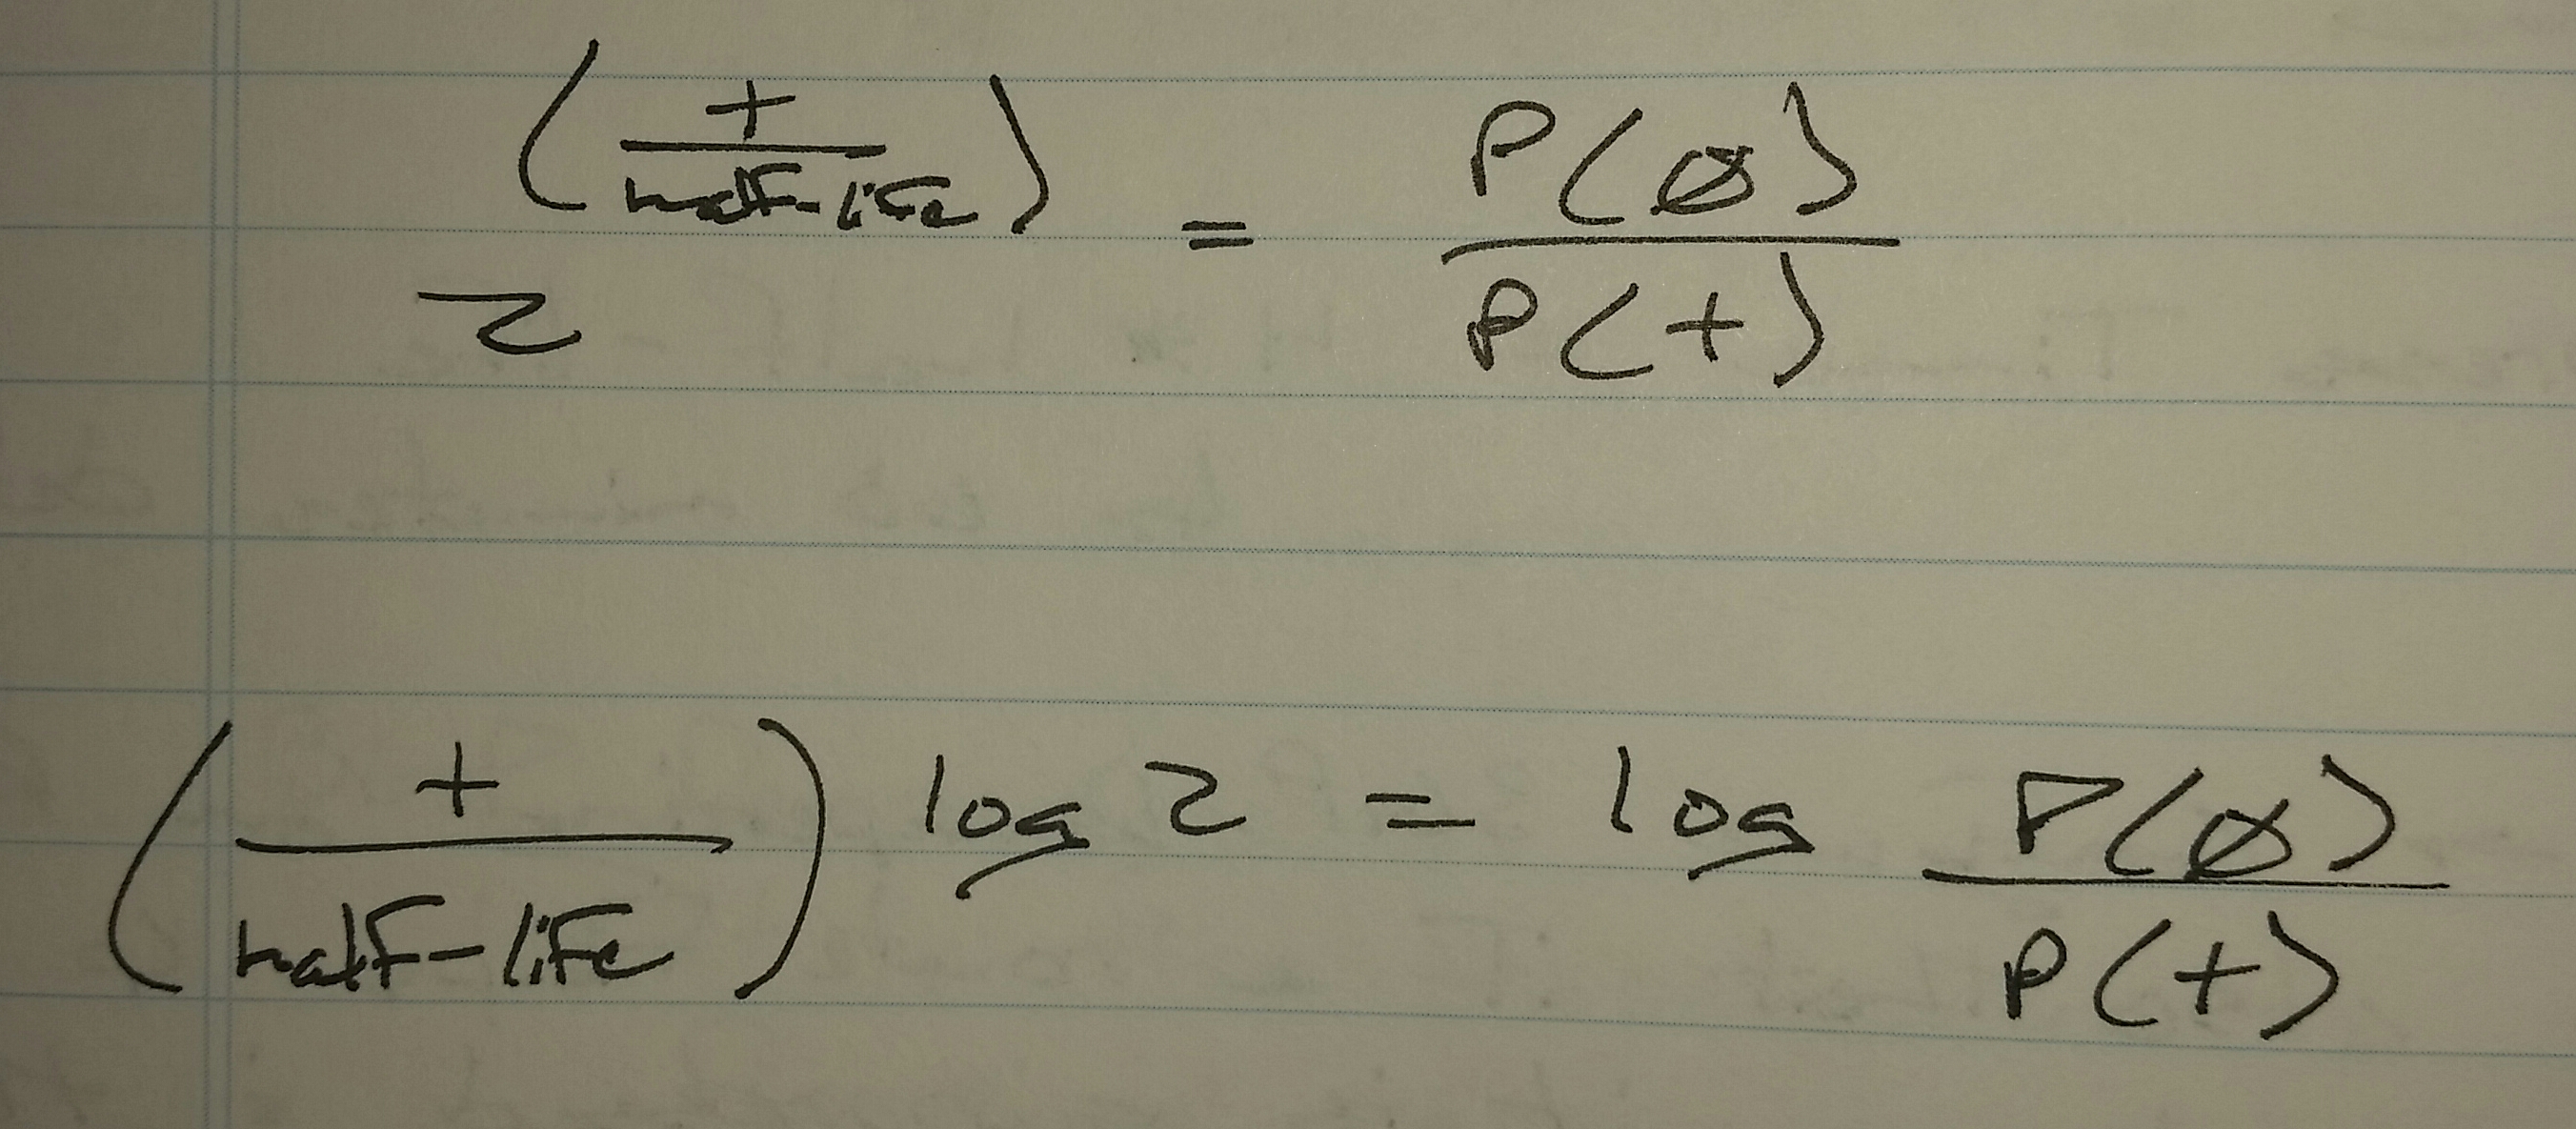 2^(t/half-life) = P(0)/P(t)
(t/half-life) log 2 = log P(0)/P(t)